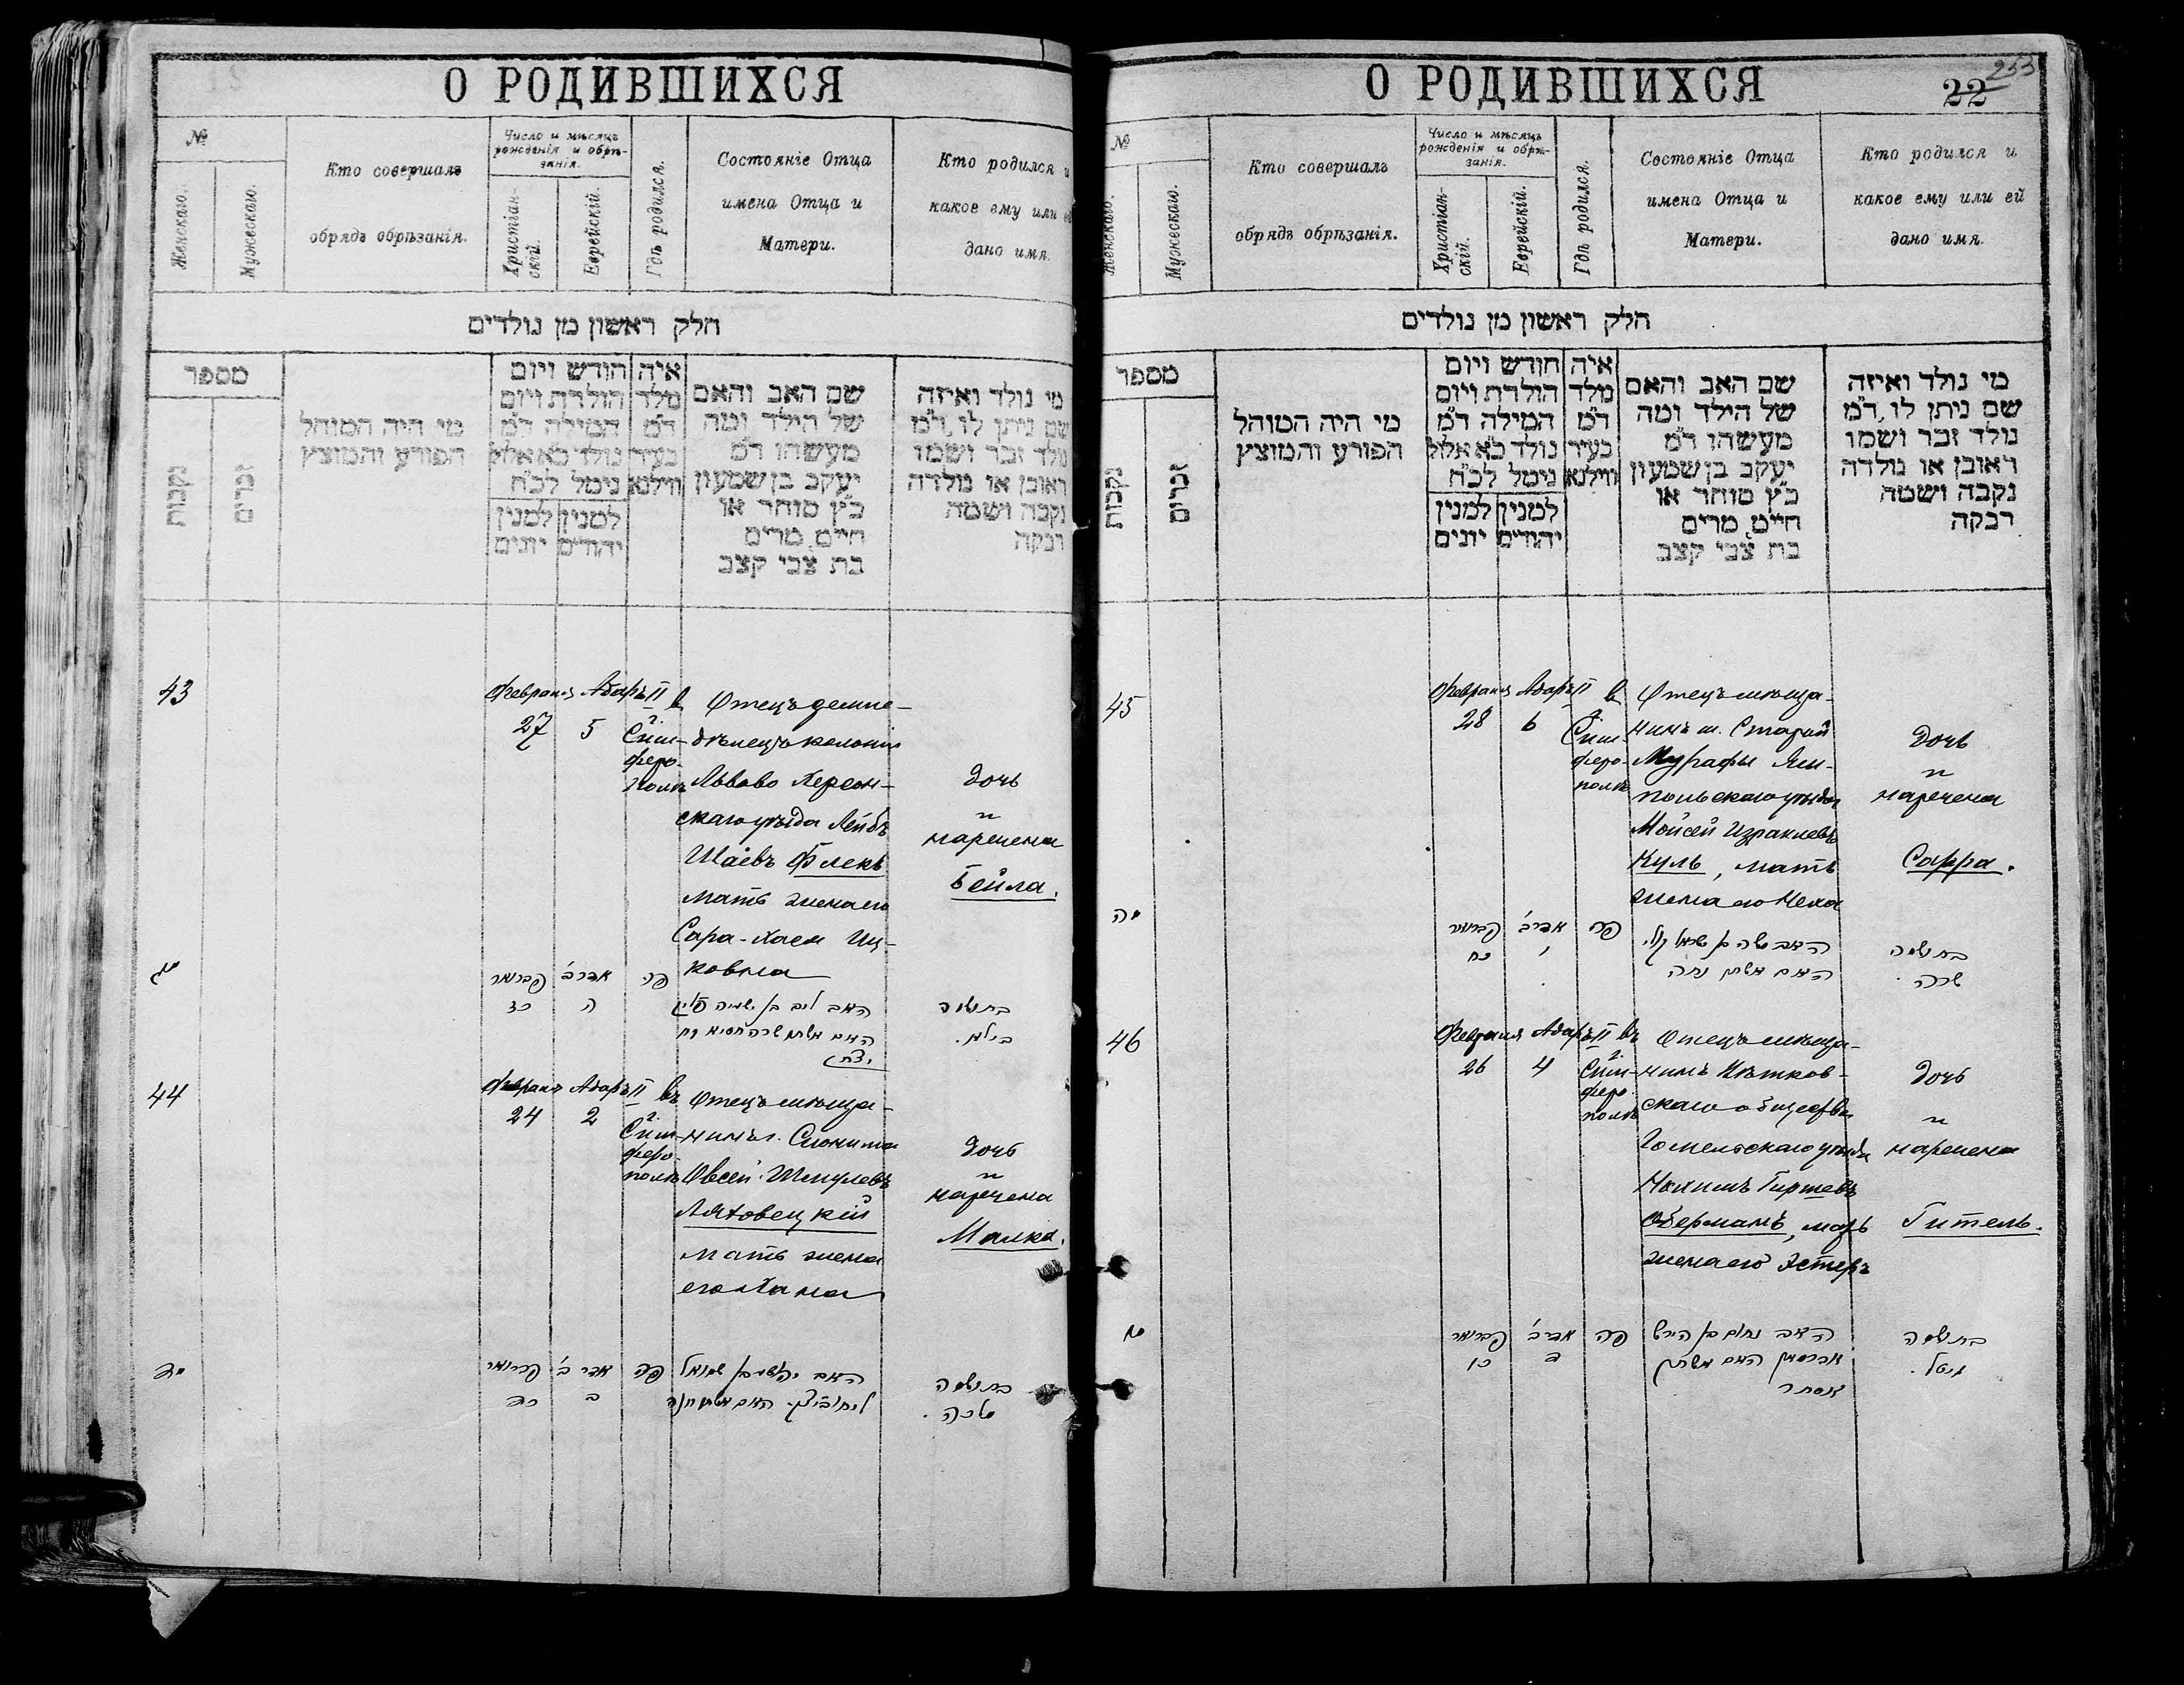 О РОДИВШИХСЯ
№
Женскаго.
Мужескаго.
Кто совершалъ
обрядъ обрѣзанія.
Число и мѣсяцъ
рожденія и обрѣ-
занія.
Христіан-
скій.
Еврейскій.
Гдѣ родился.
Состояніе Отца
имена Отца и
Матери.
Кто родился и
какое ему или ей
дано имя.
חלק ראשון מן נולדים
מספר
נקבות
זכרים
מי היה המוהל
הפורע והמוצץ
חודש ויום
הולדת ויום
המילה ד״מ
נולד כא אלול
נימל לכ״ח
למנין למנין
יהודים יונים
איה
מלד
ד״מ
בעיר
ווילנא
שם האב והאם
של הילד ומה
מעשהו ד״מ
יעקב בן שמעון
כ״ץ סוחר או
חיים, מרים
בת צבי קצב
מי נולד ואיזה
שם ניתן לו, ד״מ
נולד זכר ושמו
ראובן או נולדה
נקבה ושמה
רבקה
43
Февраля Адаръ II в
27 5
г. Сим-
феро-
полѣ
Отецъ земле-
дѣлецъ колоніи
Львово Херсон-
скаго уѣзда Лейбъ
Шаевъ Флекъ
мать жена его
Сара-Хася Иц-
ковна
Дочь
и
наречена
Бейла.
מג
פברואר
כז
אדר ב׳
ה
פה
האב ליב בן ישעיה פלעק
האם אשתו שרה חסיא בת
יצחק
בת ושמה
בילא.
44
Февраля Адаръ II въ
24 2
г. Сим-
феро-
полѣ
Отецъ мѣща-
нинъ г. Слонима
Овсей Шмулевъ
Ляховецкій
мать жена
его Хана
Дочь
и
наречена
Малка.
מד
פברואר
כד
אדר ב׳
ב
פה
האב יהושע בן שמואל
האם אשתו חנה
בת ושמה
מלכה.
О РОДИВШИХСЯ
22
253
№
Женскаго.
Мужескаго.
Кто совершалъ
обрядъ обрѣзанія.
Число и мѣсяцъ
рожденія и обрѣ-
занія.
Христіан-
скій.
Еврейскій.
Гдѣ родился.
Состояніе Отца
имена Отца и
Матери.
Кто родился и
какое ему или ей
дано имя.
חלק ראשון מן נולדים
מספר
נקבות
זכרים
מי היה המוהל
הפורע והמוצץ
חודש ויום
הולדת ויום
המילה ד״מ
נולד כא אלול
נימל לכ״ח
למנין למנין
יהודים יונים
איה
מלד
ד״מ
בעיר
ווילנא
שם האב והאם
של הילד ומה
מעשהו ד״מ
יעקב בן שמעון
כ״ץ סוחר או
חיים, מרים
בת צבי קצב
מי נולד ואיזה
שם ניתן לו, ד״מ
נולד זכר ושמו
ראובן או נולדה
נקבה ושמה
רבקה
45
Февраля Адаръ II в
28 6
г. Сим-
феро-
полѣ
Отецъ мѣща-
нинъ м. Старой
Мурафы Ям-
польскаго уѣзда
Мойсей Израилевъ
Куль, мать
жена его Неха
Дочь
и
наречена
Сарра.
מה
פברואר
כח
אדר ב׳
ו
פה
האב משה בן ישראל קול
האם אשתו נחה
בת ושמה
שרה.
46
Февраля Адаръ II въ
26 4
г. Сим-
феро-
полѣ
Отецъ мѣща-
нинъ Вѣтков-
скаго общества
Гомельскаго уѣзда
Нахимъ Гиршевъ
Оберманъ, мать
жена его Эстеръ
Дочь
и
наречена
Гитель.
מו
פברואר
כו
אדר ב׳
ד
פה
האב נחום בן הירש
אברמאן האם אשתו
אסתר
בת ושמה
גיטל.